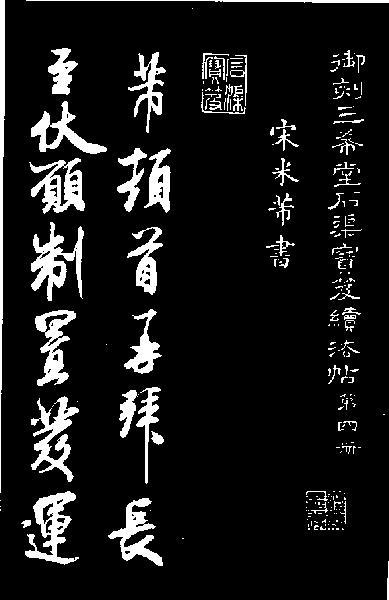 御刻三希堂石渠寶笈續法帖第四冊
宋米芾書
石渠
寶笈
芾頓首再拜長
至伏願制置發運